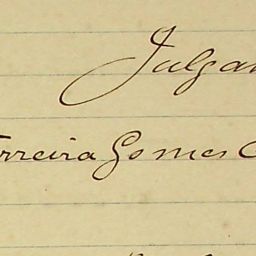 Julga
rreira Gomes C